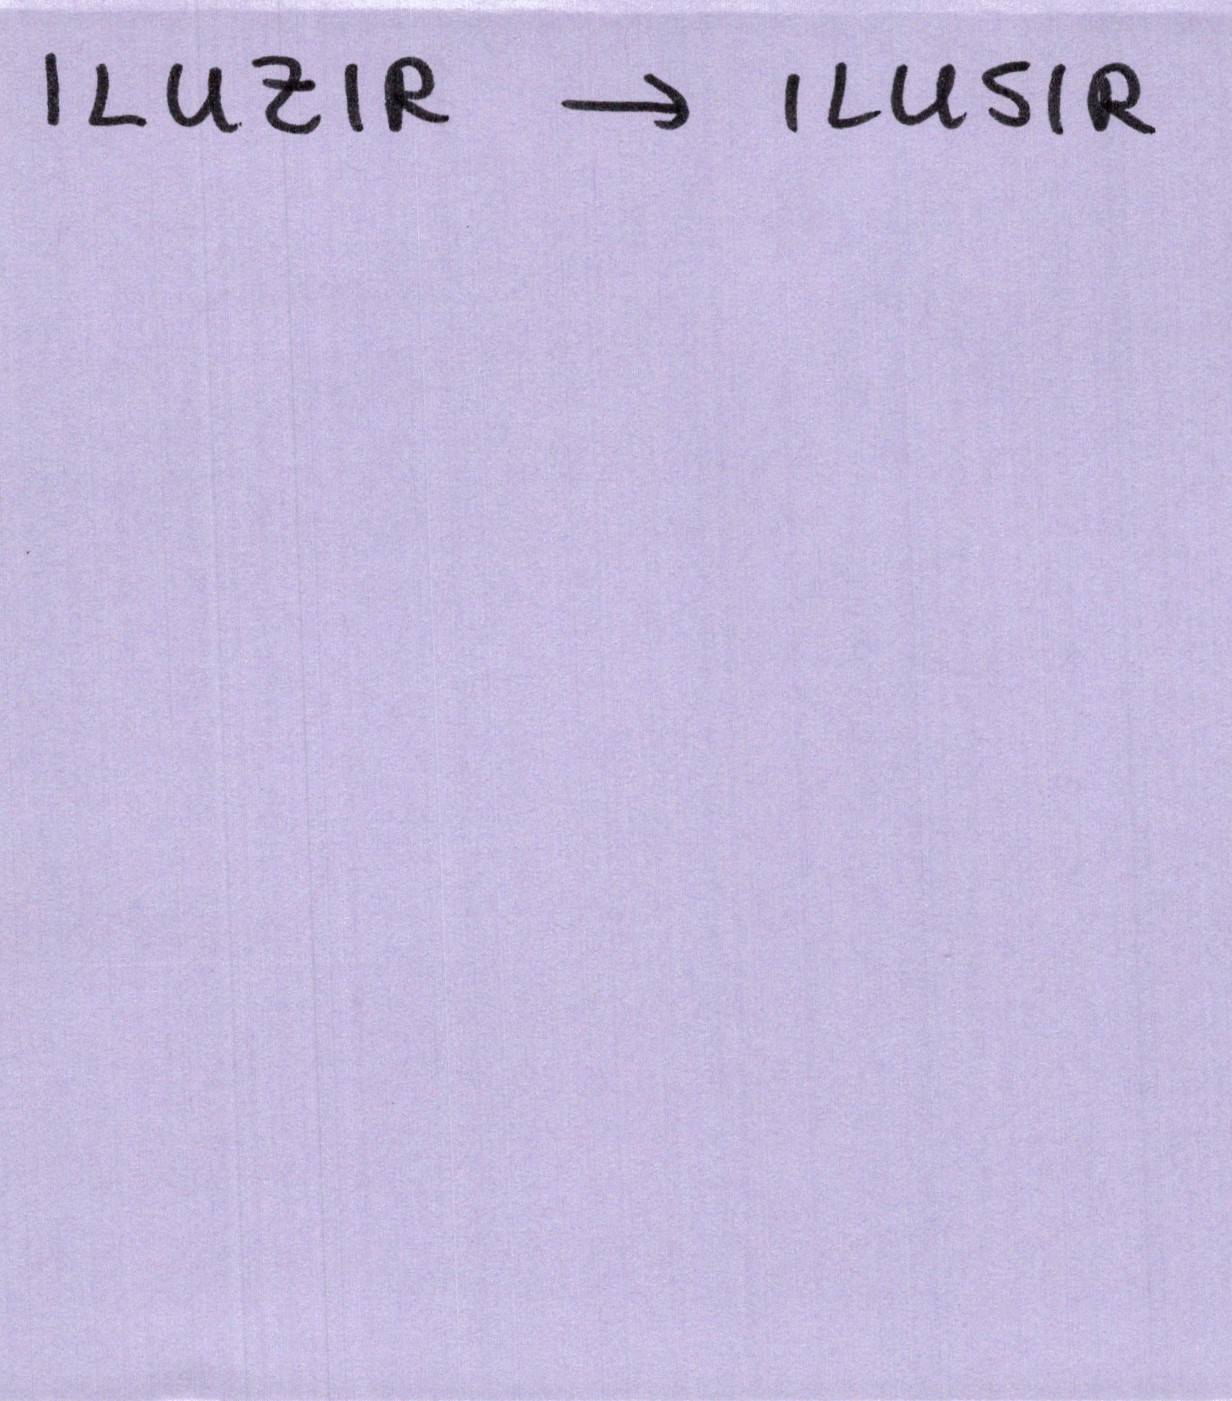 ILUZIR → ILUSIR